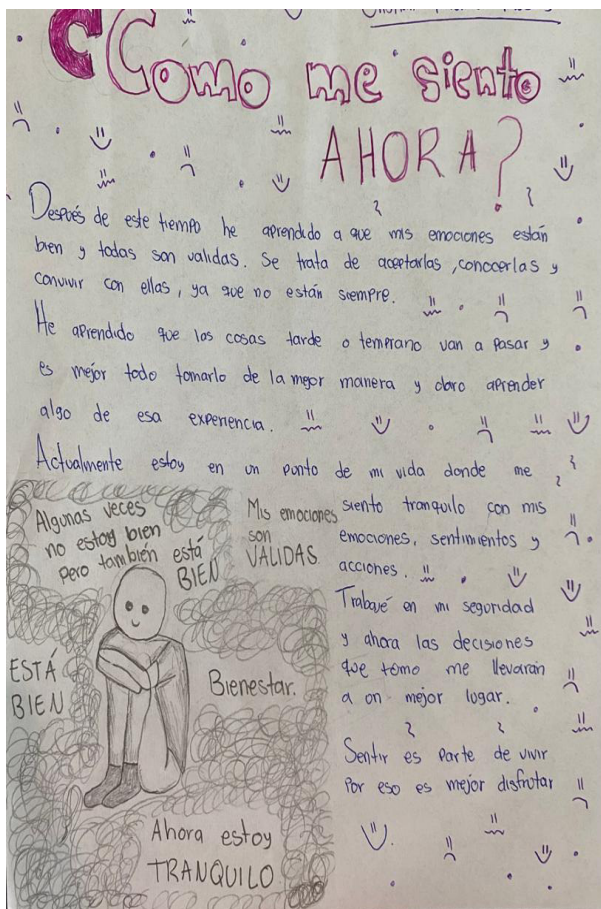 ¿Como me siento
AHORA?
Después de este tiempo he aprendido a que mis emociones están
bien y todas son validas. Se trata de aceptarlas, conocerlas y
convivir con ellas, ya que no están siempre.
He aprendido que las cosas tarde o temprano van a pasar y
es mejor todo tomarlo de la mejor manera y claro aprender
algo de esa experiencia.
Actualmente estoy en un punto de mi vida donde me
siento tranquilo con mis
emociones, sentimientos y
acciones.
Trabajé en mi seguridad
y ahora las decisiones
que tomo me llevarán
a un mejor lugar.
Sentir es parte de vivir
Por eso es mejor disfrutar
Algunas veces
no estoy bien
Pero también está
BIEN
Mis emociones
son
VALIDAS
ESTÁ
BIEN
Bienestar.
Ahora estoy
TRANQUILO